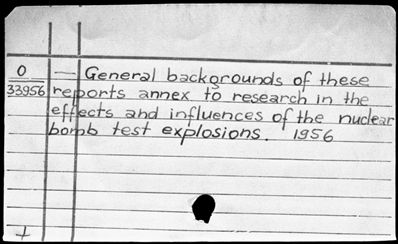 O — General backgrounds of these
33956 reports annex to research in the
effects and influences of the nuclear
bomb test explosions. 1956